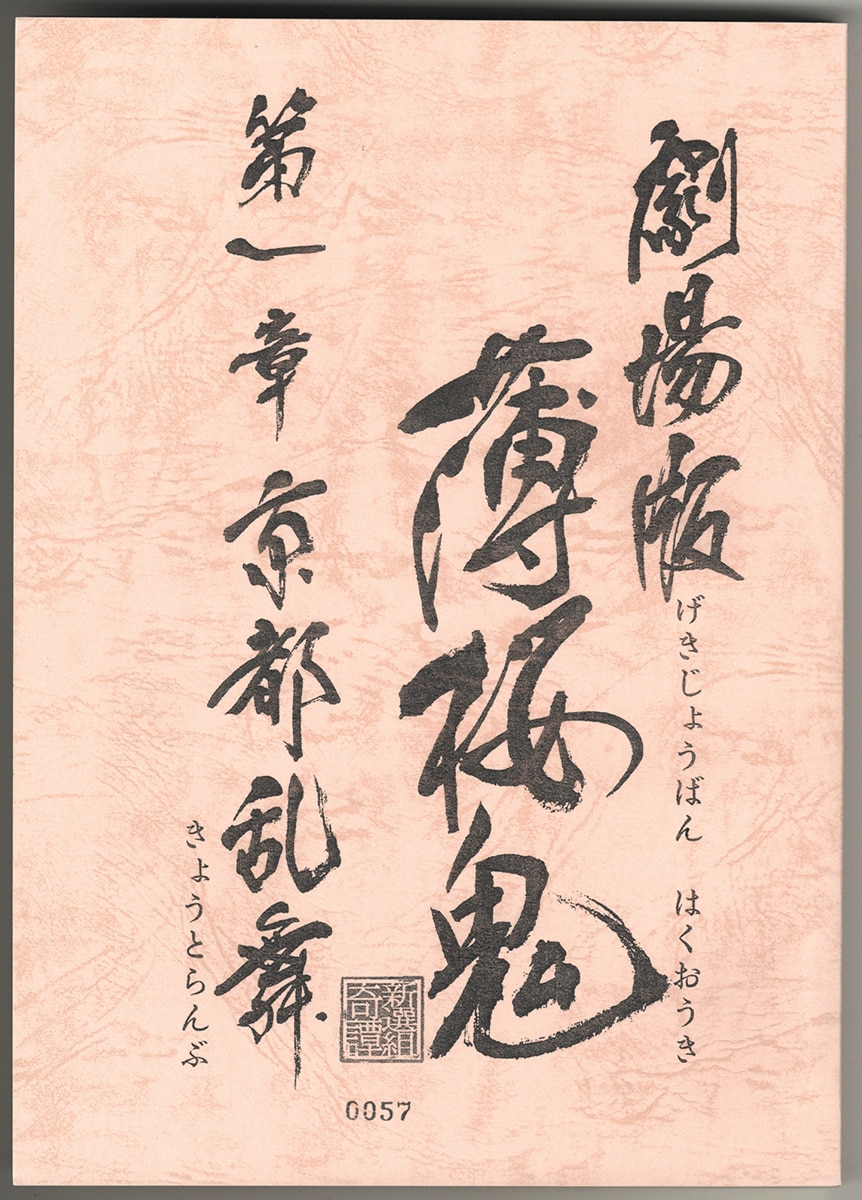 劇場版
げきじょうばん　はくおうき
薄桜鬼
第一章 京都乱舞
きょうとらんぶ
新選組
奇譚
0057